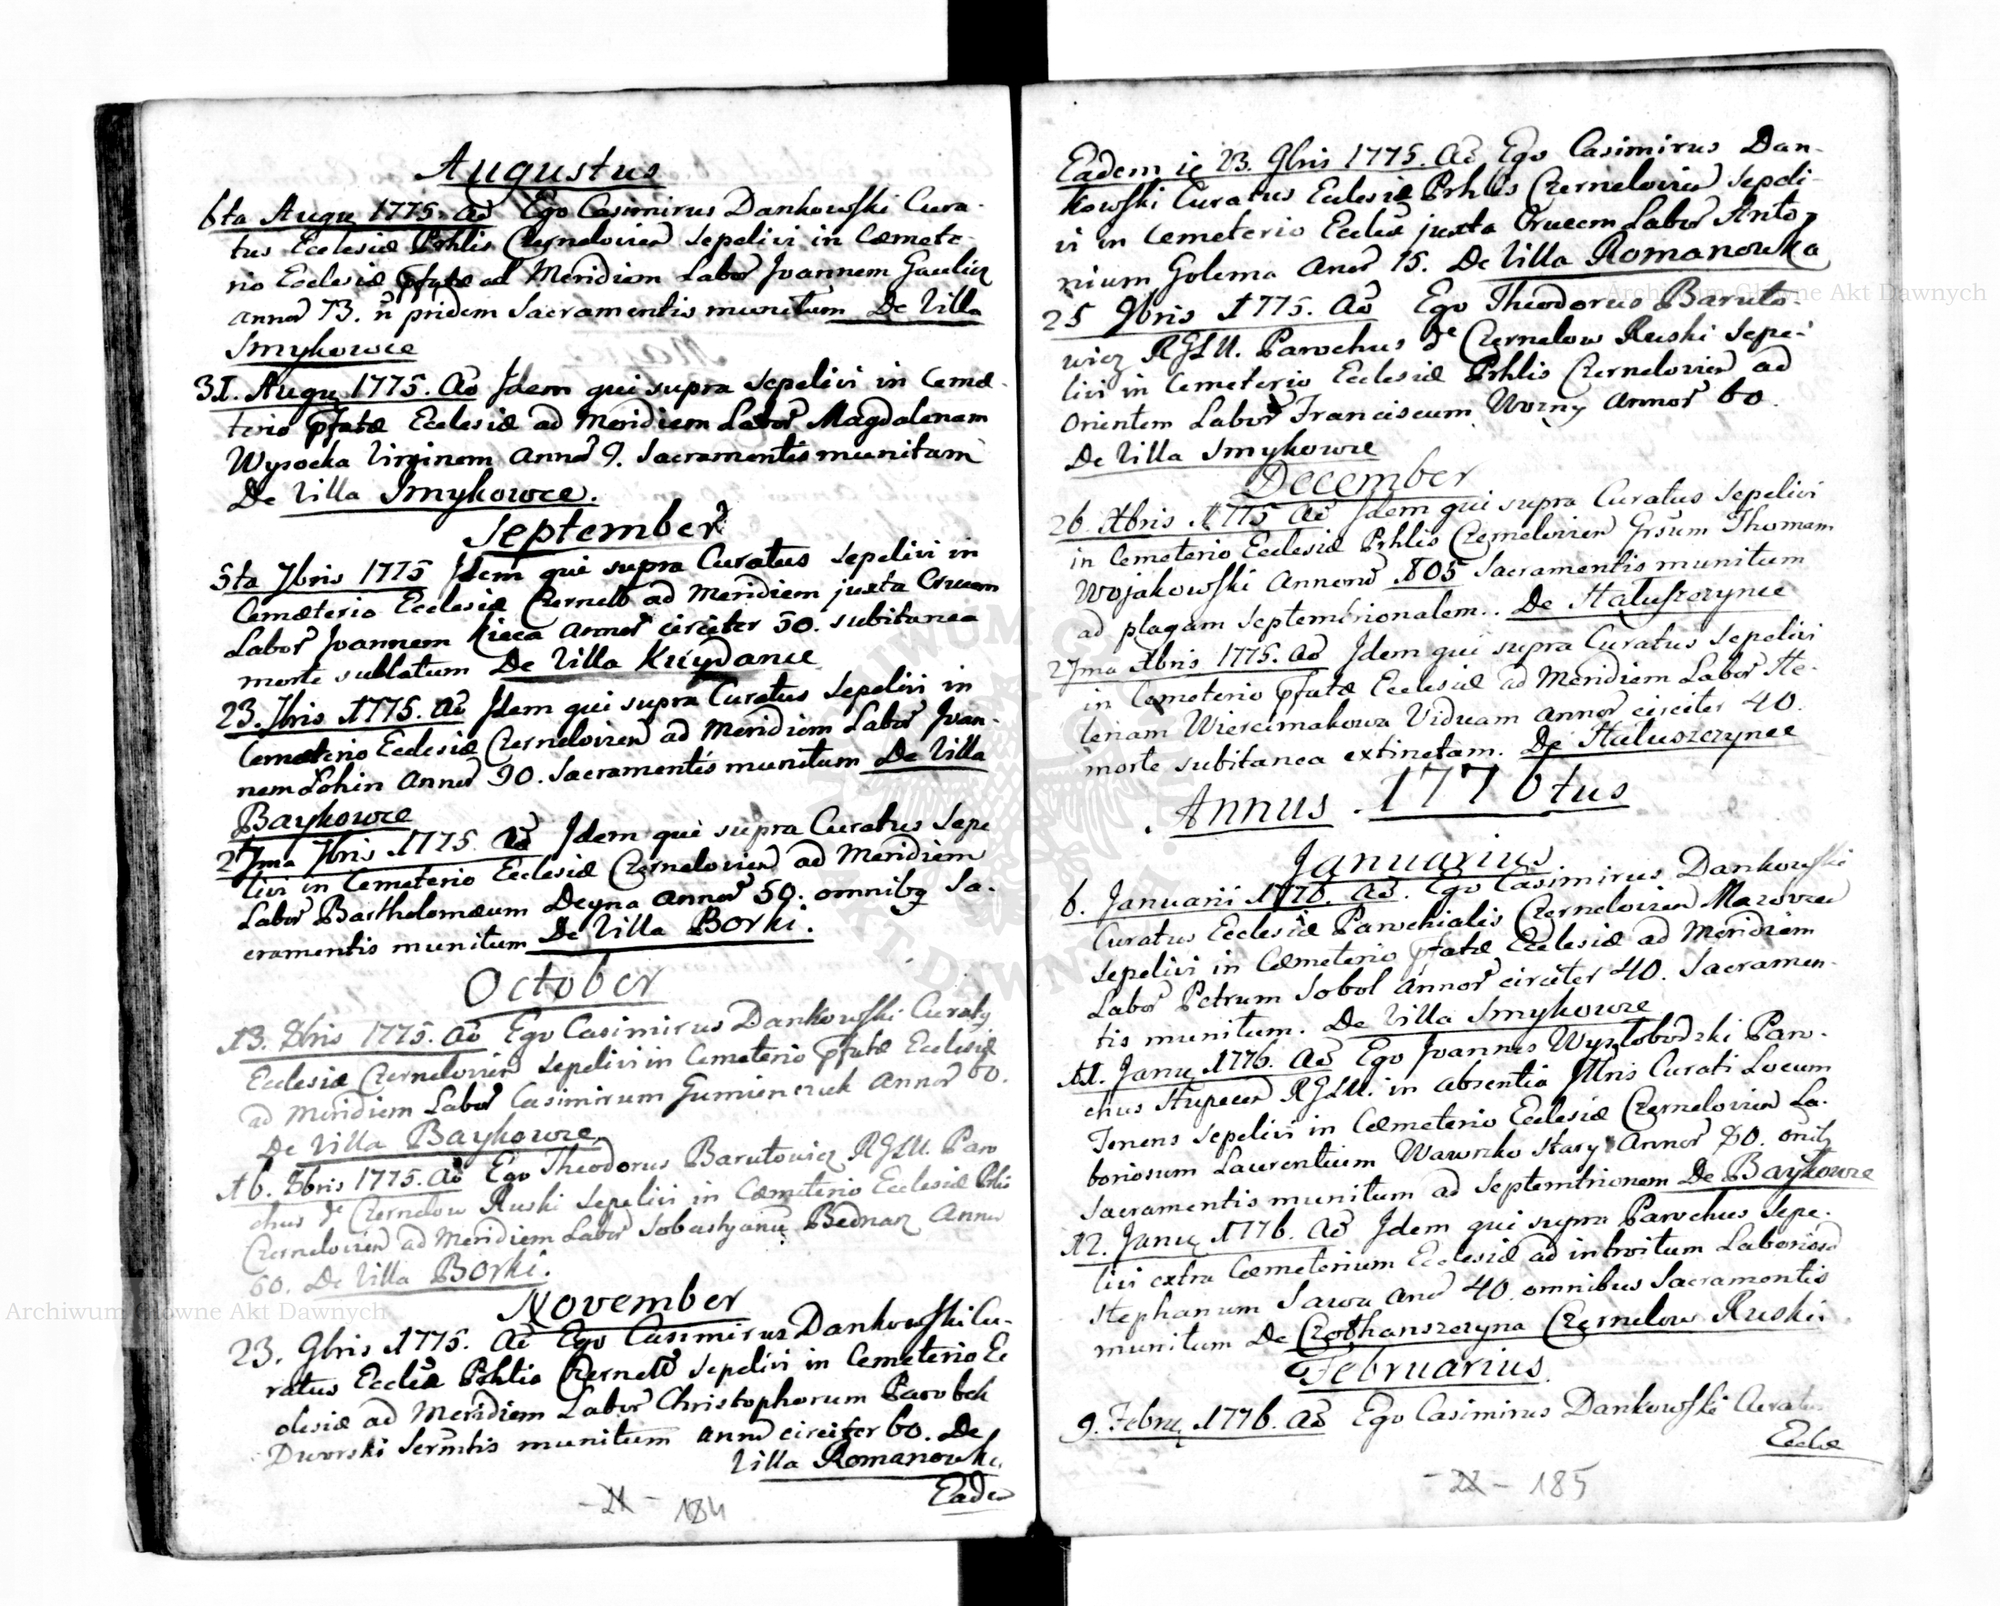 Augustus
6ta Augu 1775. Ao Ego Casimirus Dankowski Cura-
tus Ecclesiæ Prhlis Czernelovien sepelivi in Cæmete-
rio Ecclesiæ pfatæ ad Meridiem Labor Joannem Gaulicz
annor 73. pridem Sacramentis munitum De Villa
Smykowce
31. Augu 1775. Ao Idem qui supra sepelivi in Cemæ-
terio pfatæ Ecclesiæ ad Meridiem Labor Magdalenam
Wysocka Virginem annor 9. Sacramentis munitam
De Villa Smykowce.
September
5ta 7bris 1775 Idem qui supra Curatus sepelivi in
Cemæterio Ecclesiæ Czernelo ad Meridiem juxta Crucem
Labor Joannem Kieca annor circiter 50. subitanea
morte sublatum De Villa Kuydance
23. 7bris 1775. Ao Idem qui supra Curatus Sepelivi in
Cemæterio Ecclesiæ Czernelovien ad Meridiem Labor Joan-
nem Łohin annor 90. Sacramentis munitum De Villa
Baykowce
27ma 7bris 1775. Ao Idem qui supra Curatus Sepe
livi in Cemeterio Ecclesiæ Czernelovien ad Meridiem
Labor Bartholomæum Deyna annor 50. omnibq Sa-
cramentis munitum De Villa Borki.
October
13. 8bris 1775. Ao Ego Casimirus Dankowski Curatq
Ecclesiæ Czernelovien sepelivi in Cemeterio pfatæ Ecclesiæ
ad Meridiem Labor Casimirum Gumienczuk annor 60.
De Villa Baykowce
16. 8bris 1775. Ao Ego Theodorus Barutowicz RGLU. Paro
chus de Czernelow Ruski Sepelivi in Cæmeterio Ecclesiæ Prhlis
Czernelovien ad Meridiem Labor Sobastyanu Bednarz Annor
60. De Villa Borki.
November
23. 9bris 1775. Ao Ego Casimirus Dankowski Cu-
ratus Ecclæ Prhlis Czernelo sepelivi in Cemeterio Ec
clesiæ ad Meridiem Labor Christophorum Parobek
Dworski Sermtis munitum annor circiter 60. De
Villa Romanowka
Eadem
- 21 - 184
Eadem ie 23. 9bris 1775. Ao Ego Casimirus Dan-
kowski Curatus Ecclesiæ Prhlis Czernelovien sepeli-
vi in Cemeterio Ecclæ juxta Crucem Labor Anto-
nium Golema Anor 15. De Villa Romanowka
25 9bris 1775. Ao Ego Theodorus Baruto-
wicz RGLU. Parochus de Czernelow Ruski Sepe-
livi in Cemeterio Ecclesiæ Prhlis Czernelovien ad
Orientem Labor Franciscum Wozny Annor 60.
De Villa Smykowce
December
26. Xbris 1775 Ao Idem qui supra Curatus Sepelivi
in Cemeterio Ecclesiæ Prhlis Czernelovien Grsum Thomam
Wojakowski Annoru 105 Sacramentis munitum
ad plagam Septemtrionalem.. De Staluszczynce
27ma Xbris 1775. Ao Idem qui supra Curatus Sepelivi
in Cemeterio pfatæ Ecclesiæ ad Meridiem Labor Ste-
Wiercimakowa Viduam annor circiter 40.
morte subitanea extinctam. De Stuluszczynce
Annus 1776tus
Januarius
6. Januarii 1776. Ao. Ego Casimirus Dankowski
Curatus Ecclesiæ Parochialis Czernelovien Mazovien
sepelivi in Cæmeterio pfatæ Ecclesiæ ad Meridiem
Labor Petrum Sobol Annor circiter 40. Sacramen-
tis munitum. De Villa Smykowce
11. Janu 1776. Ao Ego Joannes Wysłobodzki Paro-
chus Stupecen RGLU. in absentia Illris Curati Locum
Tenens sepelivi in Cæmeterio Ecclesiæ Czernelovien La-
boriosum Laurentium Wawrzko Stary Annor 80. omib
Sacramentis munitum ad Septemtrionem De Baykowce
12. Janu 1776. Ao Idem qui supra Parochus Sepe-
livi extra Cæmeterium Ecclesiæ ad introitum Laborios
Stephanum Sawa Anor 40. omnibus Sacramentis
munitum De Czothanszczyna Czernelow Ruski.
Februarius
9. Febru 1776. Ao Ego Casimirus Dankowski Curatus
Ecclæ
- 22 - 185
Archiwum Główne Akt Dawnych
Archiwum Główne Akt Dawnych